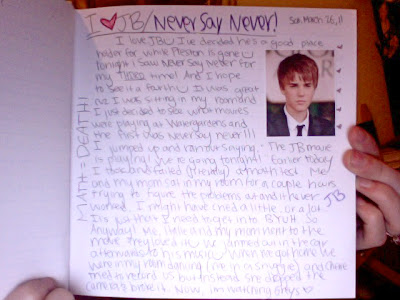 I ♥ JB/ Never Say Never!
Sun. March 26, 11
I love JB. I've decided he's a good place
holder for while Preston is gone.
Tonight I saw Never Say Never for
my THIRD time! And I hope
to see it a fourth. It was great
cuz I was sitting in my room and
I just decided to see what movies
were playing at Watergardens and
the first was Never Say Never!!!
I jumped up and ran our saying, "The JB movie
is playing! We're going tonight!" Earlier today
I took and failed (literally) a math test. Me
and my mom sat in my room for a couple hours
trying to figure the problems out and it never
worked. I might have cried a little.. or a lot.
It's just that I need to get into BYUH. So
Anyway! Me, and my mom went to the
movie. They loved it. We jammed out in the car
afterwards to his music. When we got home we
were in my room dancing (me in a snuggie) and
tried to record us but instead she dropped the
camera & broke it. Now, I'm watching
MATH = DEATH!
JB